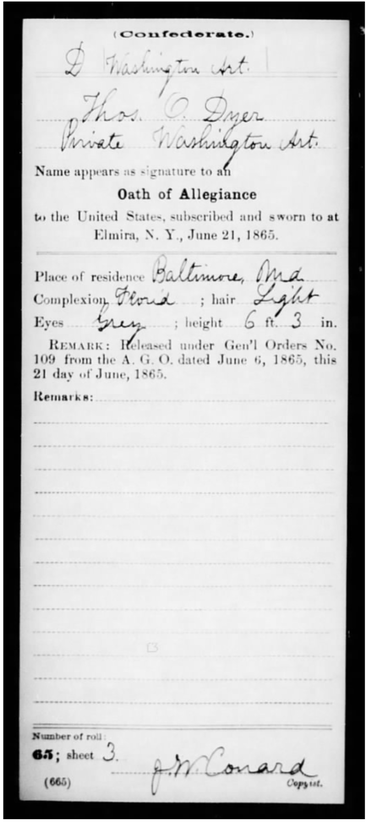 (Confederate.)
D | Washington Art. |
Thos. O. Dyer
Private Washington Art.
Name appears as signature to an
Oath of Allegiance
to the United States, subscribed and sworn to at
Elmira, N. Y., June 21, 1865.
Place of residence Baltimore, Md
Complexion Florid ; hair Light
Eyes Grey ; height 6 ft. 3 in.
REMARK: Released under Gen'l Orders No.
109 from the A. G. O. dated June 6, 1865, this
21 day of June, 1865.
Remarks:
Number of roll:
65; sheet 3.
J. W. Conard
(665) Copyist.